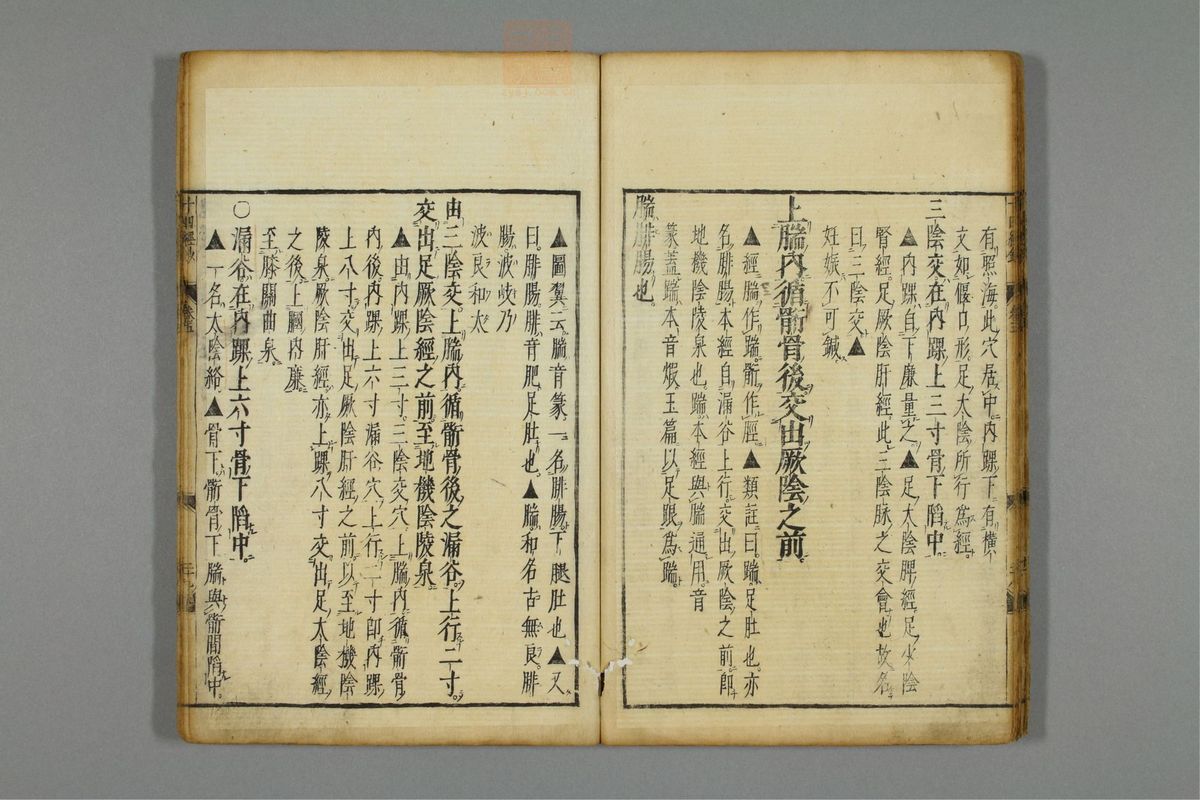 有照海此穴居中内踝下有横
文如偃口形足太陰所行爲經
三陰交在内踝上三寸骨下陷中
▲内踝自下廉量之▲足太陰脾經足少陰
腎經足厥陰肝經此三陰脉之交會也故名
曰三陰交▲
妊娠不可鍼
上腨内循䯒骨後交出厥陰之前
▲經腨作踹䯒作脛▲類註曰踹足肚也亦
名腓腸本經自漏谷上行交出厥陰之前即
地機陰陵泉也踹本經與腨通用音
篆蓋踹本音煆玉篇以足跟爲踹
腨腓腸也
▲圖翼云腨音篆一名腓腸下腿肚也▲又
曰腓腸腓音肥足肚也▲腨和名古無良腓
腸波岐乃
波良和太
由三陰交上腨内循䯒骨後之漏谷上行二寸
交出足厥陰經之前至地機陰陵泉
▲由内踝上三寸三陰交穴上腨内循䯒骨
内後内踝上六寸漏谷穴上行二寸即内踝
上八寸交出足厥陰肝經之前以至地機陰
陵泉厥陰肝經亦上踝八寸交出足太陰經
之後上膕内廉
至膝關曲泉
〇漏谷在内踝上六寸骨下陷中
▲一名太陰絡▲骨下䯒骨下腨與䯒間陷中